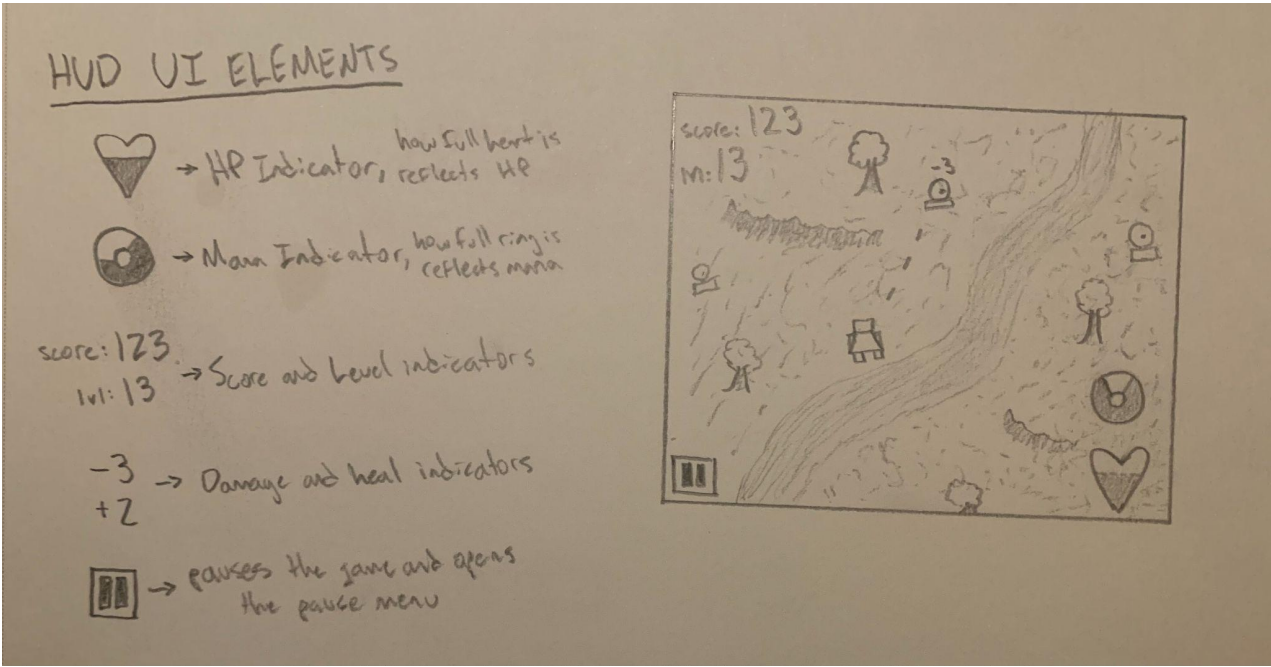 HUD UI ELEMENTS
→ HP Indicator, how full heart is
reflects HP
→ Mana Indicator, how full ring is
reflects mana
score: 123
lvl: 13
→ Score and Level indicators
-3
+2
→ Damage and heal indicators
→ pauses the game and opens
the pause menu
score: 123
lvl: 13
-3